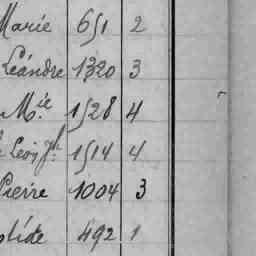 Marie 651 2
Léandre 1320 3
M.ie 1528 4
Léon Jh 1514 4
Pierre 1004 3
492 1